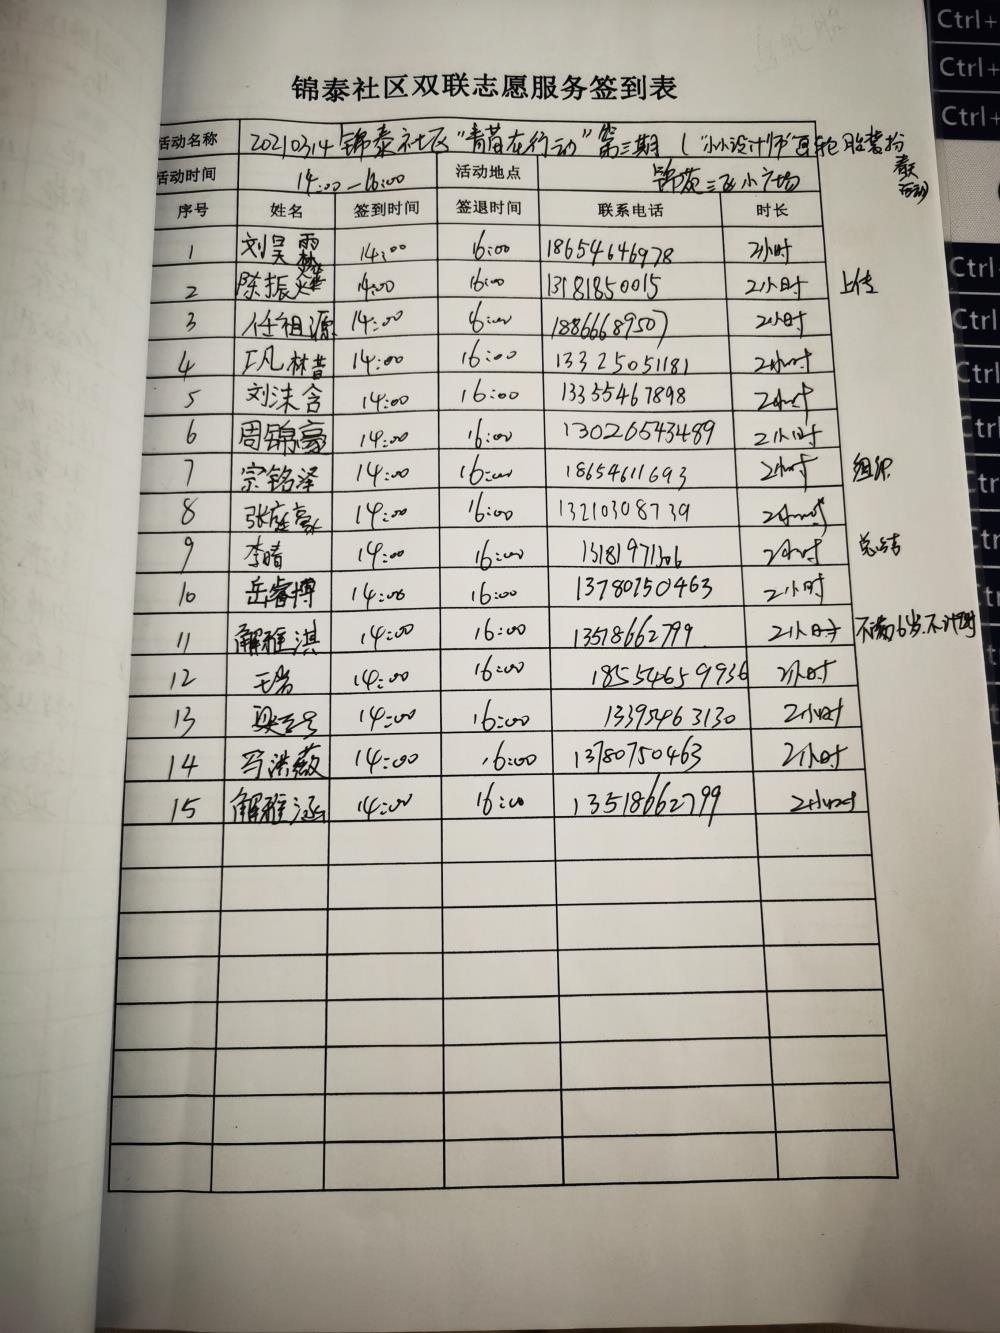 锦泰社区双联志愿服务签到表
活动名称 20210314 锦泰社区“青苗在行动”第三期（“小小设计师”画轮胎装扮春天活动）
活动时间 14:00-16:00 活动地点 锦苑三区小广场
序号 姓名 签到时间 签退时间 联系电话 时长
1 刘昊霖 14:00 16:00 18654646978 2小时
2 陈振烨 14:00 16:00 13181850015 2小时 上传
3 任祖源 14:00 16:00 18866689507 2小时
4 14:00 16:00 13325051181 2小时
5 刘沫含 14:00 16:00 13355467898 2小时
6 周锦豪 14:00 16:00 13026543489 2小时
7 宗铭泽 14:00 16:00 18654611693 2小时 组织
8 张庭豪 14:00 16:00 13210308739 2小时
9 李晴 14:00 16:00 13181971306 2小时 总结
10 岳睿博 14:00 16:00 13780750463 2小时
11 解雅淇 14:00 16:00 13518662799 2小时 不满6岁.不计时
12 14:00 16:00 18554659936 2小时
13 14:00 16:00 13395463130 2小时
14 14:00 16:00 13780750463 2小时
15 解雅涵 14:00 16:00 13518662799 2小时
Ctrl+
Ctrl+
Ctrl+
Ctrl+
Ctrl+
Ctrl+